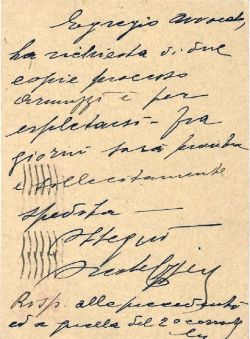 Egregio avvocato,
ha richiesta di due
copie processo
è per
espletarsi - fra
giorni sarà pronta
e sollecitamente
spedita -
Ossequi
Risp. alla precedente
ed a quella del 20 corr.